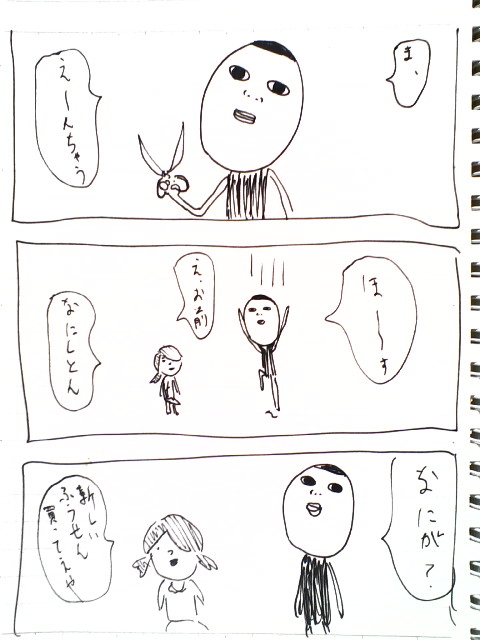 ま、
え〜んちゃう
ほ〜〜す
え、お前
なにしとん
なにが?
新しい
ふうせん
買ってえや